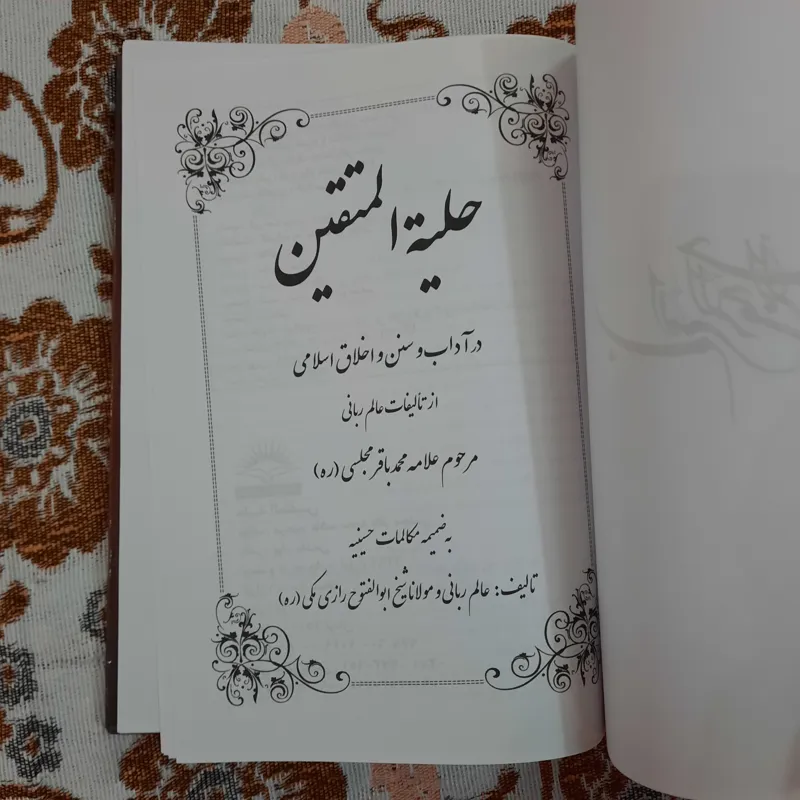 حلیة المتقین
در آداب و سنن و اخلاق اسلامی
از تألیفات عالم ربانی
مرحوم علامه محمد باقر مجلسی (ره)
به ضمیمه مکالمات حسینیه
تالیف: عالم ربانی و مولانا شیخ ابوالفتوح رازی مکی (ره)